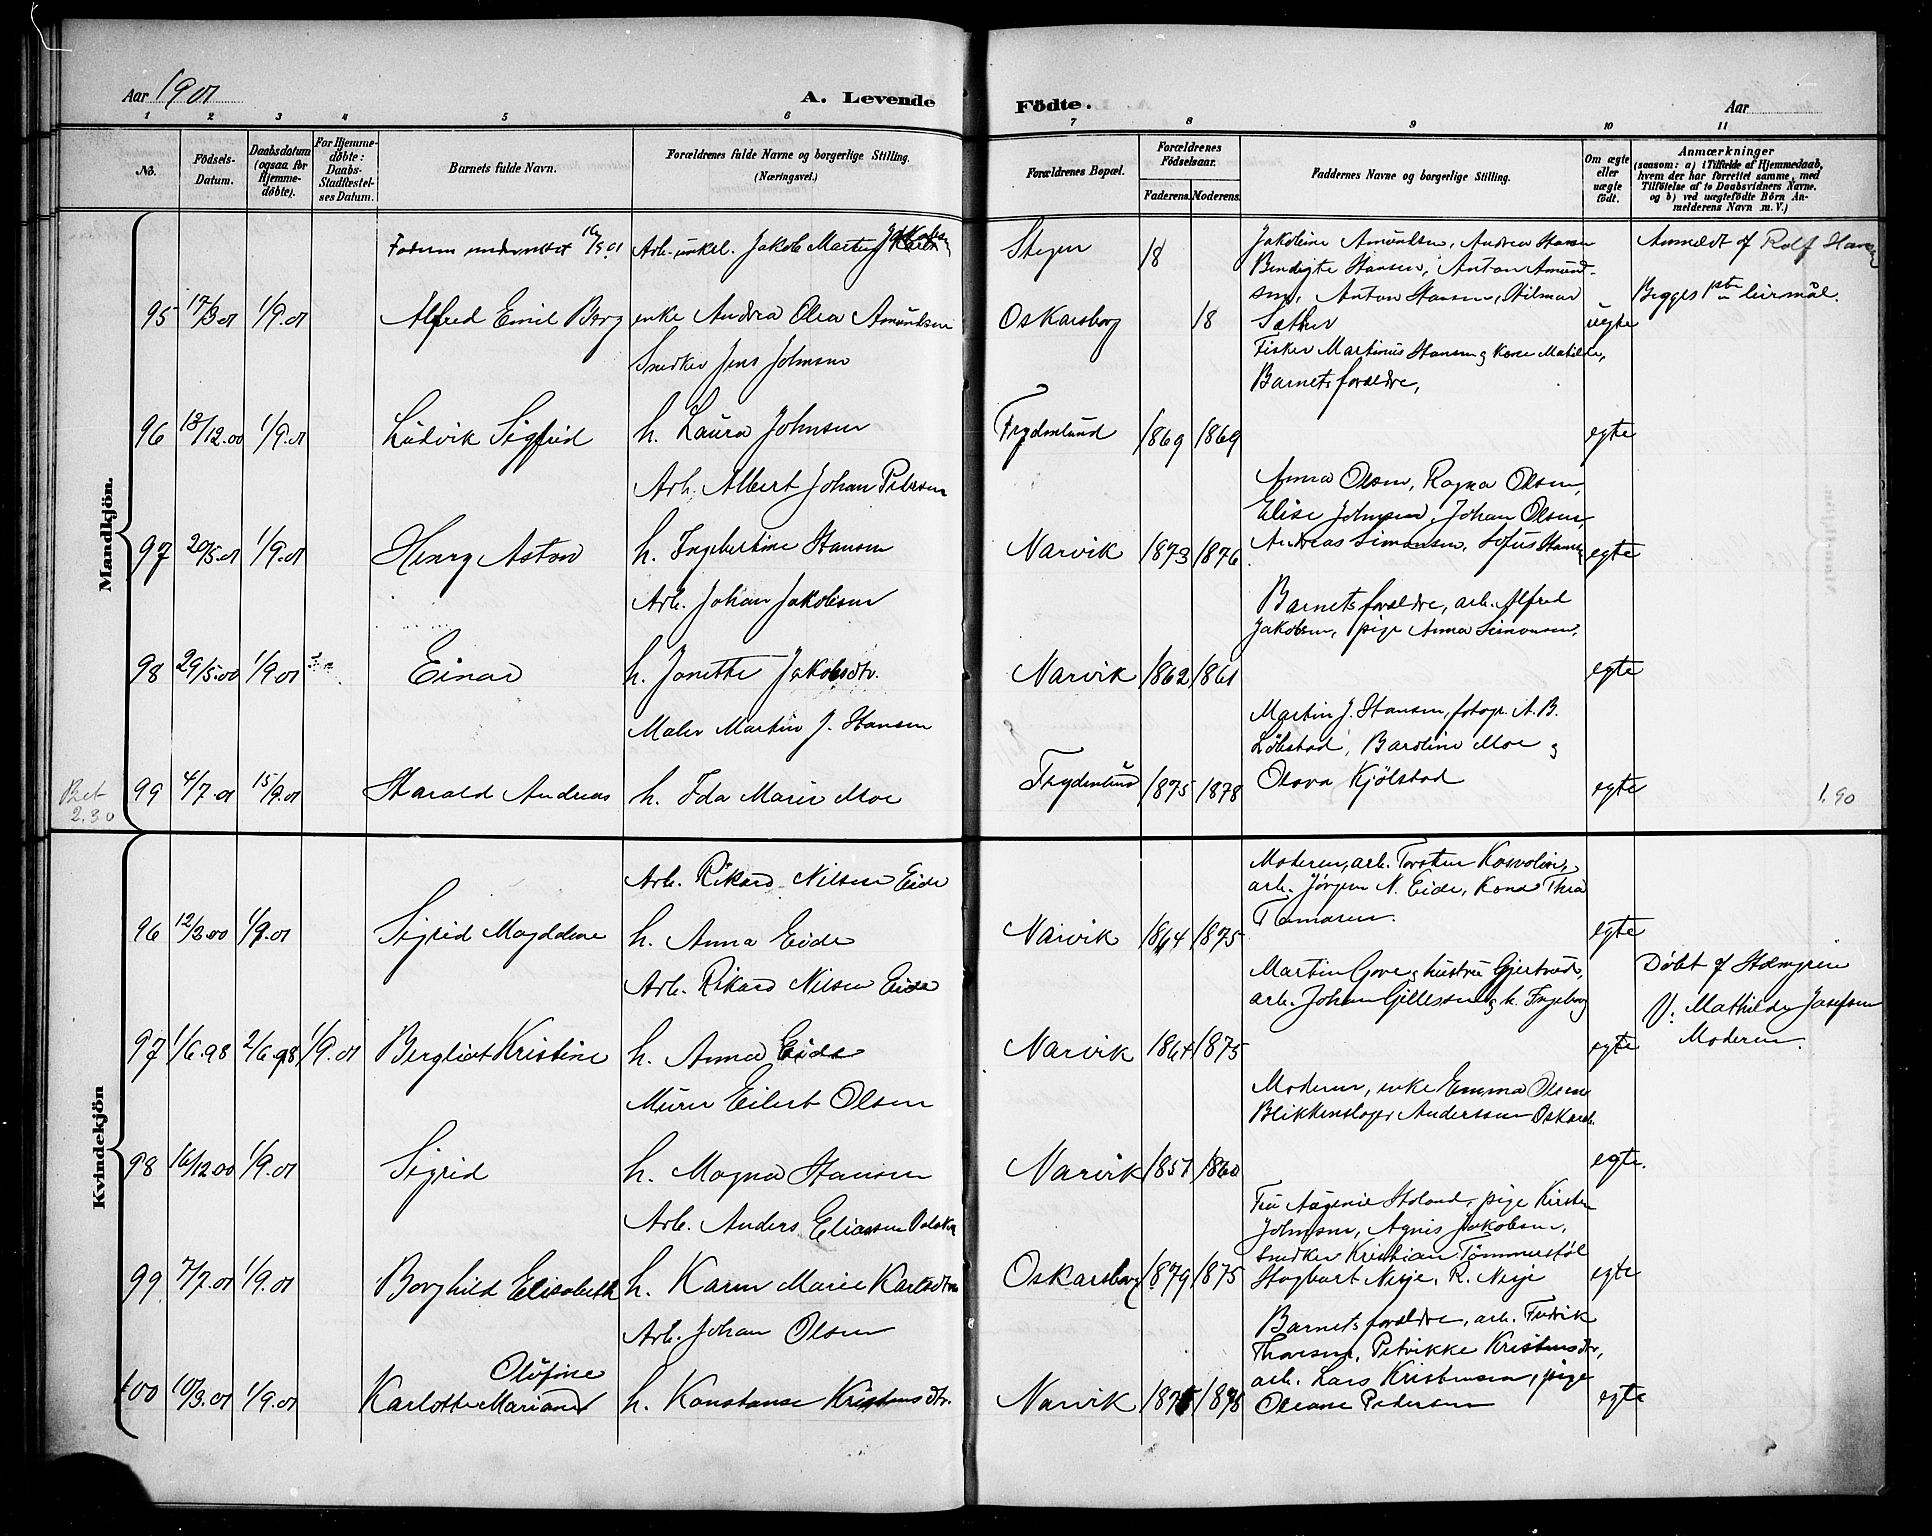 Aar 1901
A. Levende
Födte.
Aar
1 2 3 4 5 6 7 8 9 10 11
No.
Födsels-Datum.
Daabsdatum (ogsaa for Hjemme-döbte).
For Hjemme-döbte: Daabs-Stadfæstel-ses Datum.
Barnets fulde Navn.
Forældrenes fulde Navne og borgerlige Stilling. (Næringsvei.)
Forældrenes Bopæl.
Forældrenes Födselsaar.
Faderens. Moderens.
Faddernes Navne og borgerlige Stilling.
Om ægte eller uægte födt.
Anmærkninger (saasom: a) i Tilfælde af Hjemmedaab, hvem der har forrettet samme, med Tilföielse af to Daabsvidners Navne, og b) ved uægtefödte Börn An-melderens Navn m. V.)
Mandkjön.
Arb. unkel. Jakob Martin
Stegen 18
Jakobine Amundsen, Andrea Hansen
Bendigte Hansen, Anton Amund-
sen, Anton Hansen, Hilmar
Sæther
Anmeldt af Rolf
Begges leirmål.
95 17/3 01 1/9.01 Alfred Emil Borg enke Andrea Olea Amundsen Oskarsborg 18 uegte
Snedker Jens Johnsen
Fisker Martinus Hansen g Kone Matilde,
Barnets forældre,
96 13/12.00 1/9.01 Ludvik Sigfred h. Laura Johnsen Frydenlund 1869 1869 egte
Arb. Albert Johan Petersen
Anna Olsen, Ragna Olsen,
Elise Johnsen, Johan Olsen,
Andreas Simonsen, Sofus Hansen
97 20/5.01 1/9.01 Henry Aston h. Ingebertine Hansen Narvik 1873 1876 egte
Arb. Johan Jakobsen
Barnets forældre, arb. Alfred
Jakobsen, pige Anna Simonsen.
98 29/5.00 1/9.01 Einar h. Janette Jakobsdtr. Narvik 1862 1861 egte
Maler Martin J. Hansen
Martin J. Hansen, fotogr. A. B.
Löbstad, Baroline Moe g
Olava Kjölstad
Bet 2.30
99 4/7.01 15/9.01 Harald Andreas h. Ida Marie Moe Frydenlund 1875 1878 egte 1.90
Kvindekjön
Arb. Rikard Nilsen Eide
Moderen, arb. Torsten
arb. Jörgen N. Eide, Kona Thea
96 12/3.00 1/9.01 Sigrid Magdalene h. Anna Eide Narvik 1864 1875 egte
Arb. Rikard Nilsen Eide
Martin Gove g hustru Gjertrud,
arb. Johan Gillessen g h. Ingeborg
Döbt af Holmgren
V: Mathilde Josefsen
Moderen.
97 1/6.98 2/6.98 1/9.01 Bergliot Kristine h. Anna Eide Narvik 1864 1875 egte
Murer Eilert Olsen
Moderen, enke Emma Olsen
Blikkenslager Anderssen Oskarsb.
98 16/12.00 1/9.01 Sigrid h. Magna Hansen Narvik 1857 1860 egte.
Arb. Anders Eliassen
Fru Augenie Holand, pige Kirsten
Johnsen, Agnes Jakobsen,
snedker Kristian Tömmerstöl
Hagbart Nesje, R. Nesje
99 7/7.01 1/9.01 Borghild Elisabeth h. Karen Marie Karlsdtr Oskarsborg 1879 1875 egte
Arb. Johan Olsen
Barnets forældre, arb. Fredrik
Thoresen, Petrikke Kristensdtr,
arb. Lars Kristensen, pige
Oleane Pedersen
100 10/3.01 1/9.01 Karlotte Mariane Olufine h. Konstanse Kristensdtr. Narvik 1875 1878 egte